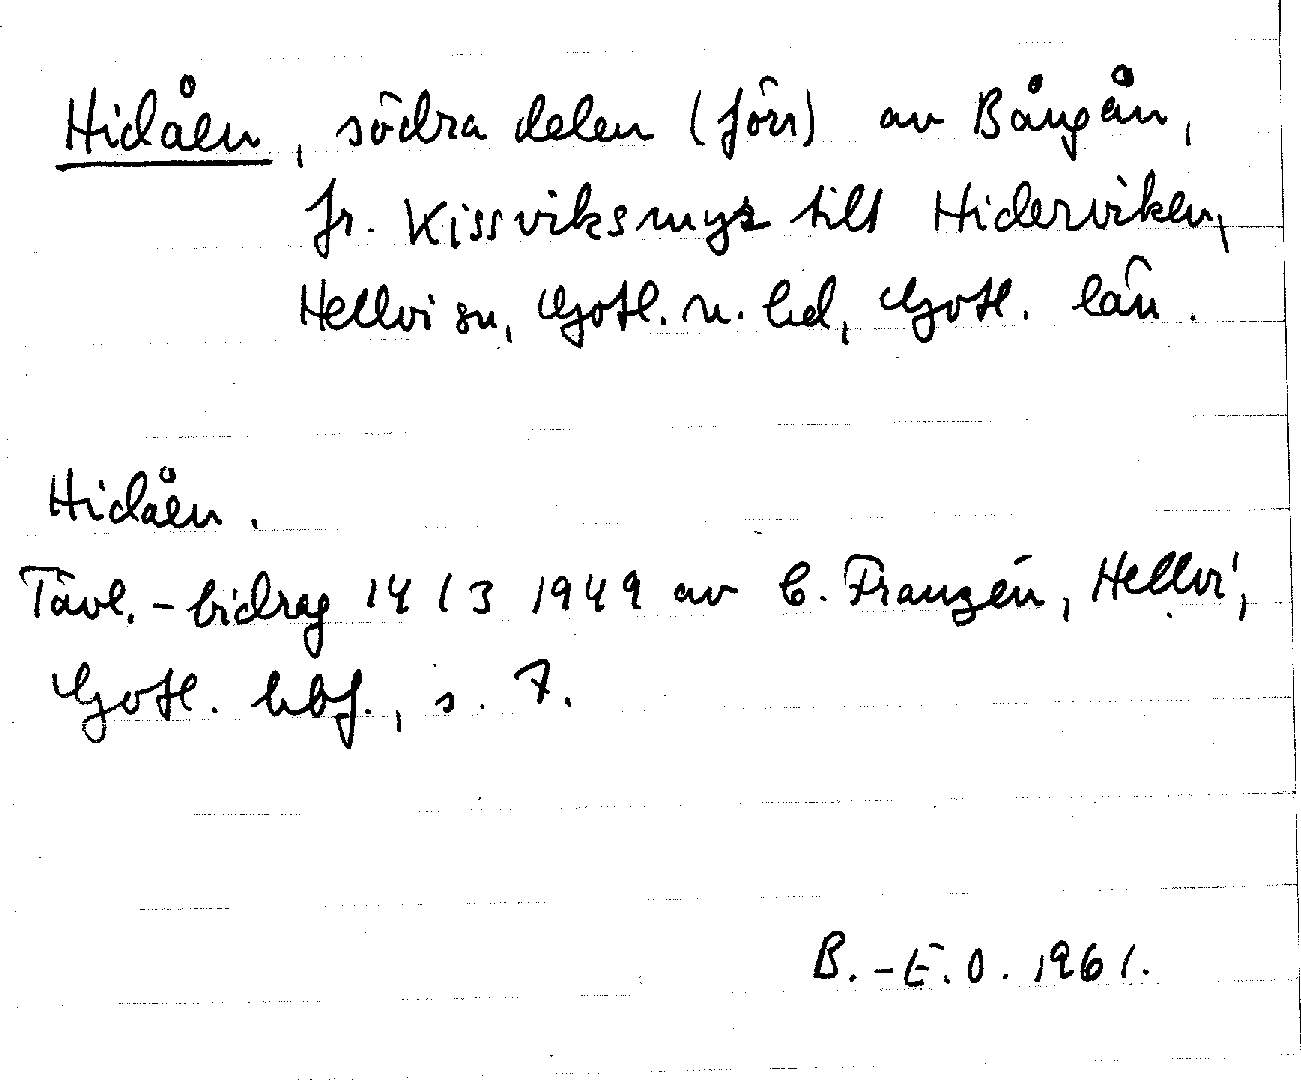 Hidåen, södra delen (förr) av Bångån,
fr. Kissviksmyr till Hiderviken,
Hellvi sn, Gotl. n. hd, Gotl. län.
Hidåen.
Tävl.-bidrag 14/3 1949 av C. Franzén, Hellvi,
Gotl. hbf., s. 7.
B.-E.O. 1961.